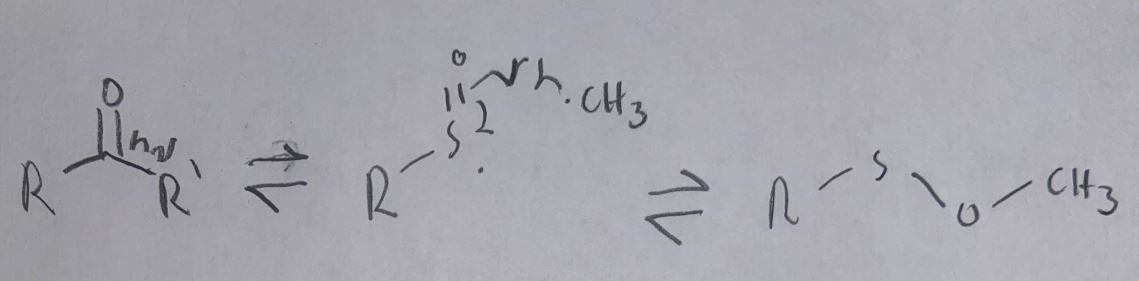 O
R hν R'
⇌
O
S 2
R
.CH3
⇌
R S O CH3